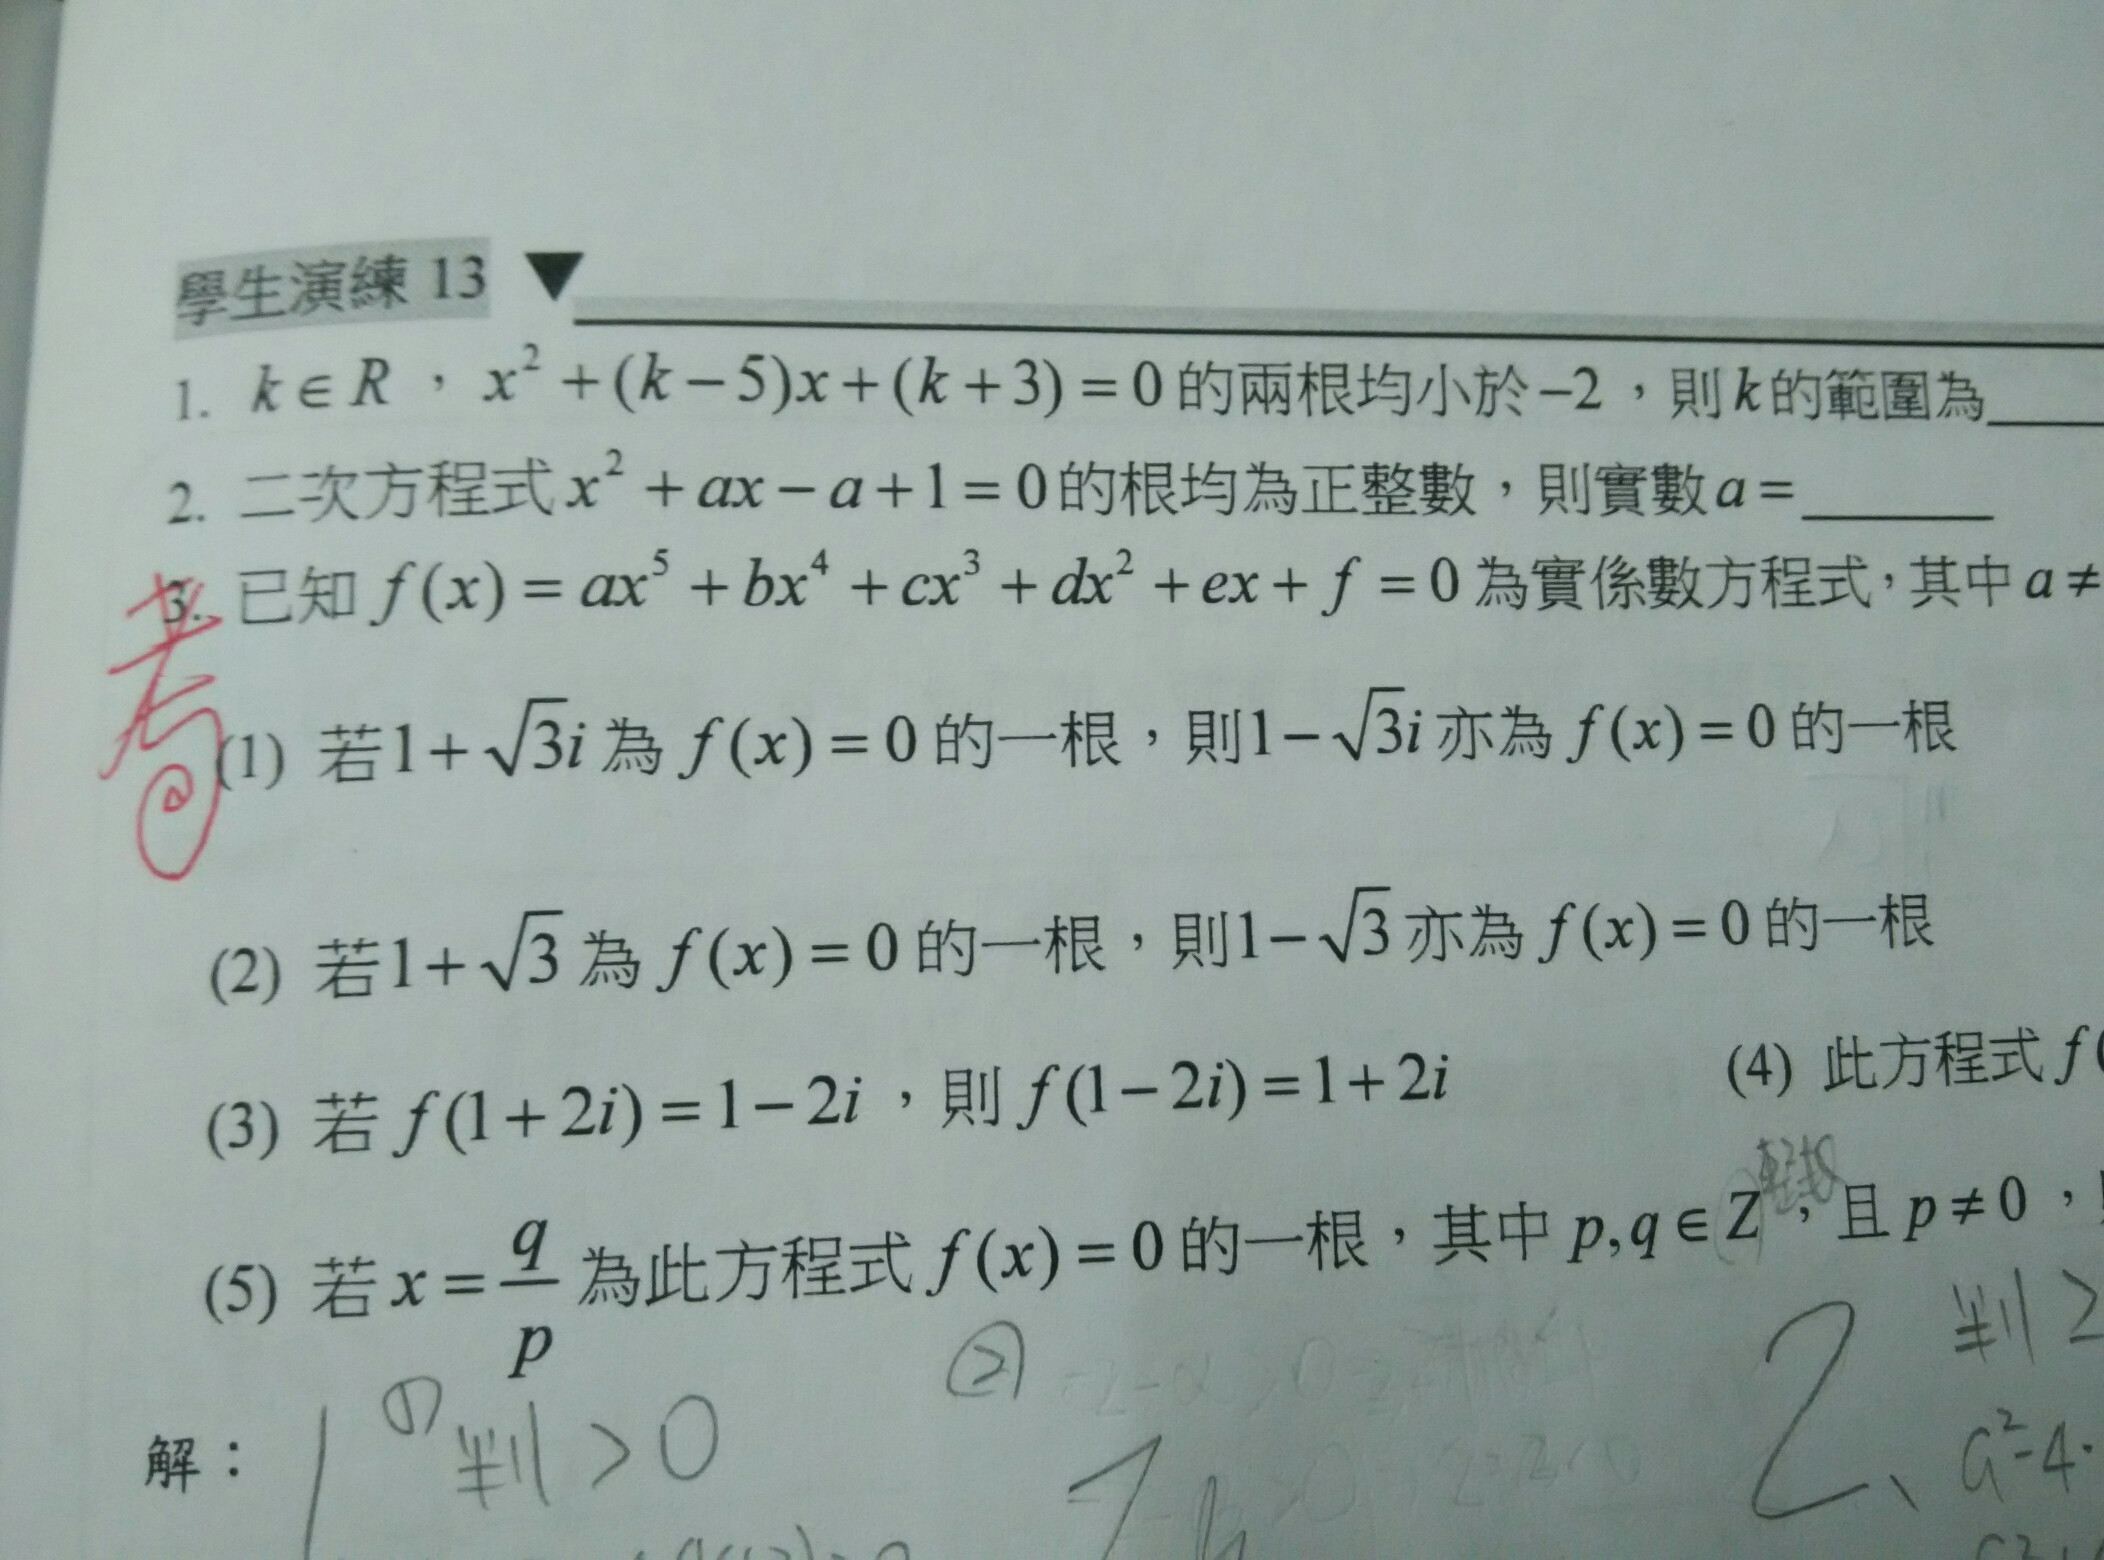 學生演練 13 ▼
1. k∈R，x²+(k−5)x+(k+3)=0的兩根均小於−2，則k的範圍為____
2. 二次方程式x²+ax−a+1=0的根均為正整數，則實數a=______
考
3. 已知f(x)=ax⁵+bx⁴+cx³+dx²+ex+f=0為實係數方程式，其中a≠
(1) 若1+√3i為f(x)=0的一根，則1−√3i亦為f(x)=0的一根
(2) 若1+√3為f(x)=0的一根，則1−√3亦為f(x)=0的一根
(3) 若f(1+2i)=1−2i，則f(1−2i)=1+2i (4) 此方程式f(
(5) 若x=q/p為此方程式f(x)=0的一根，其中p,q∈Z，且p≠0，
解： 1 (1) 判>0 ② 2、判≥
a²-4·